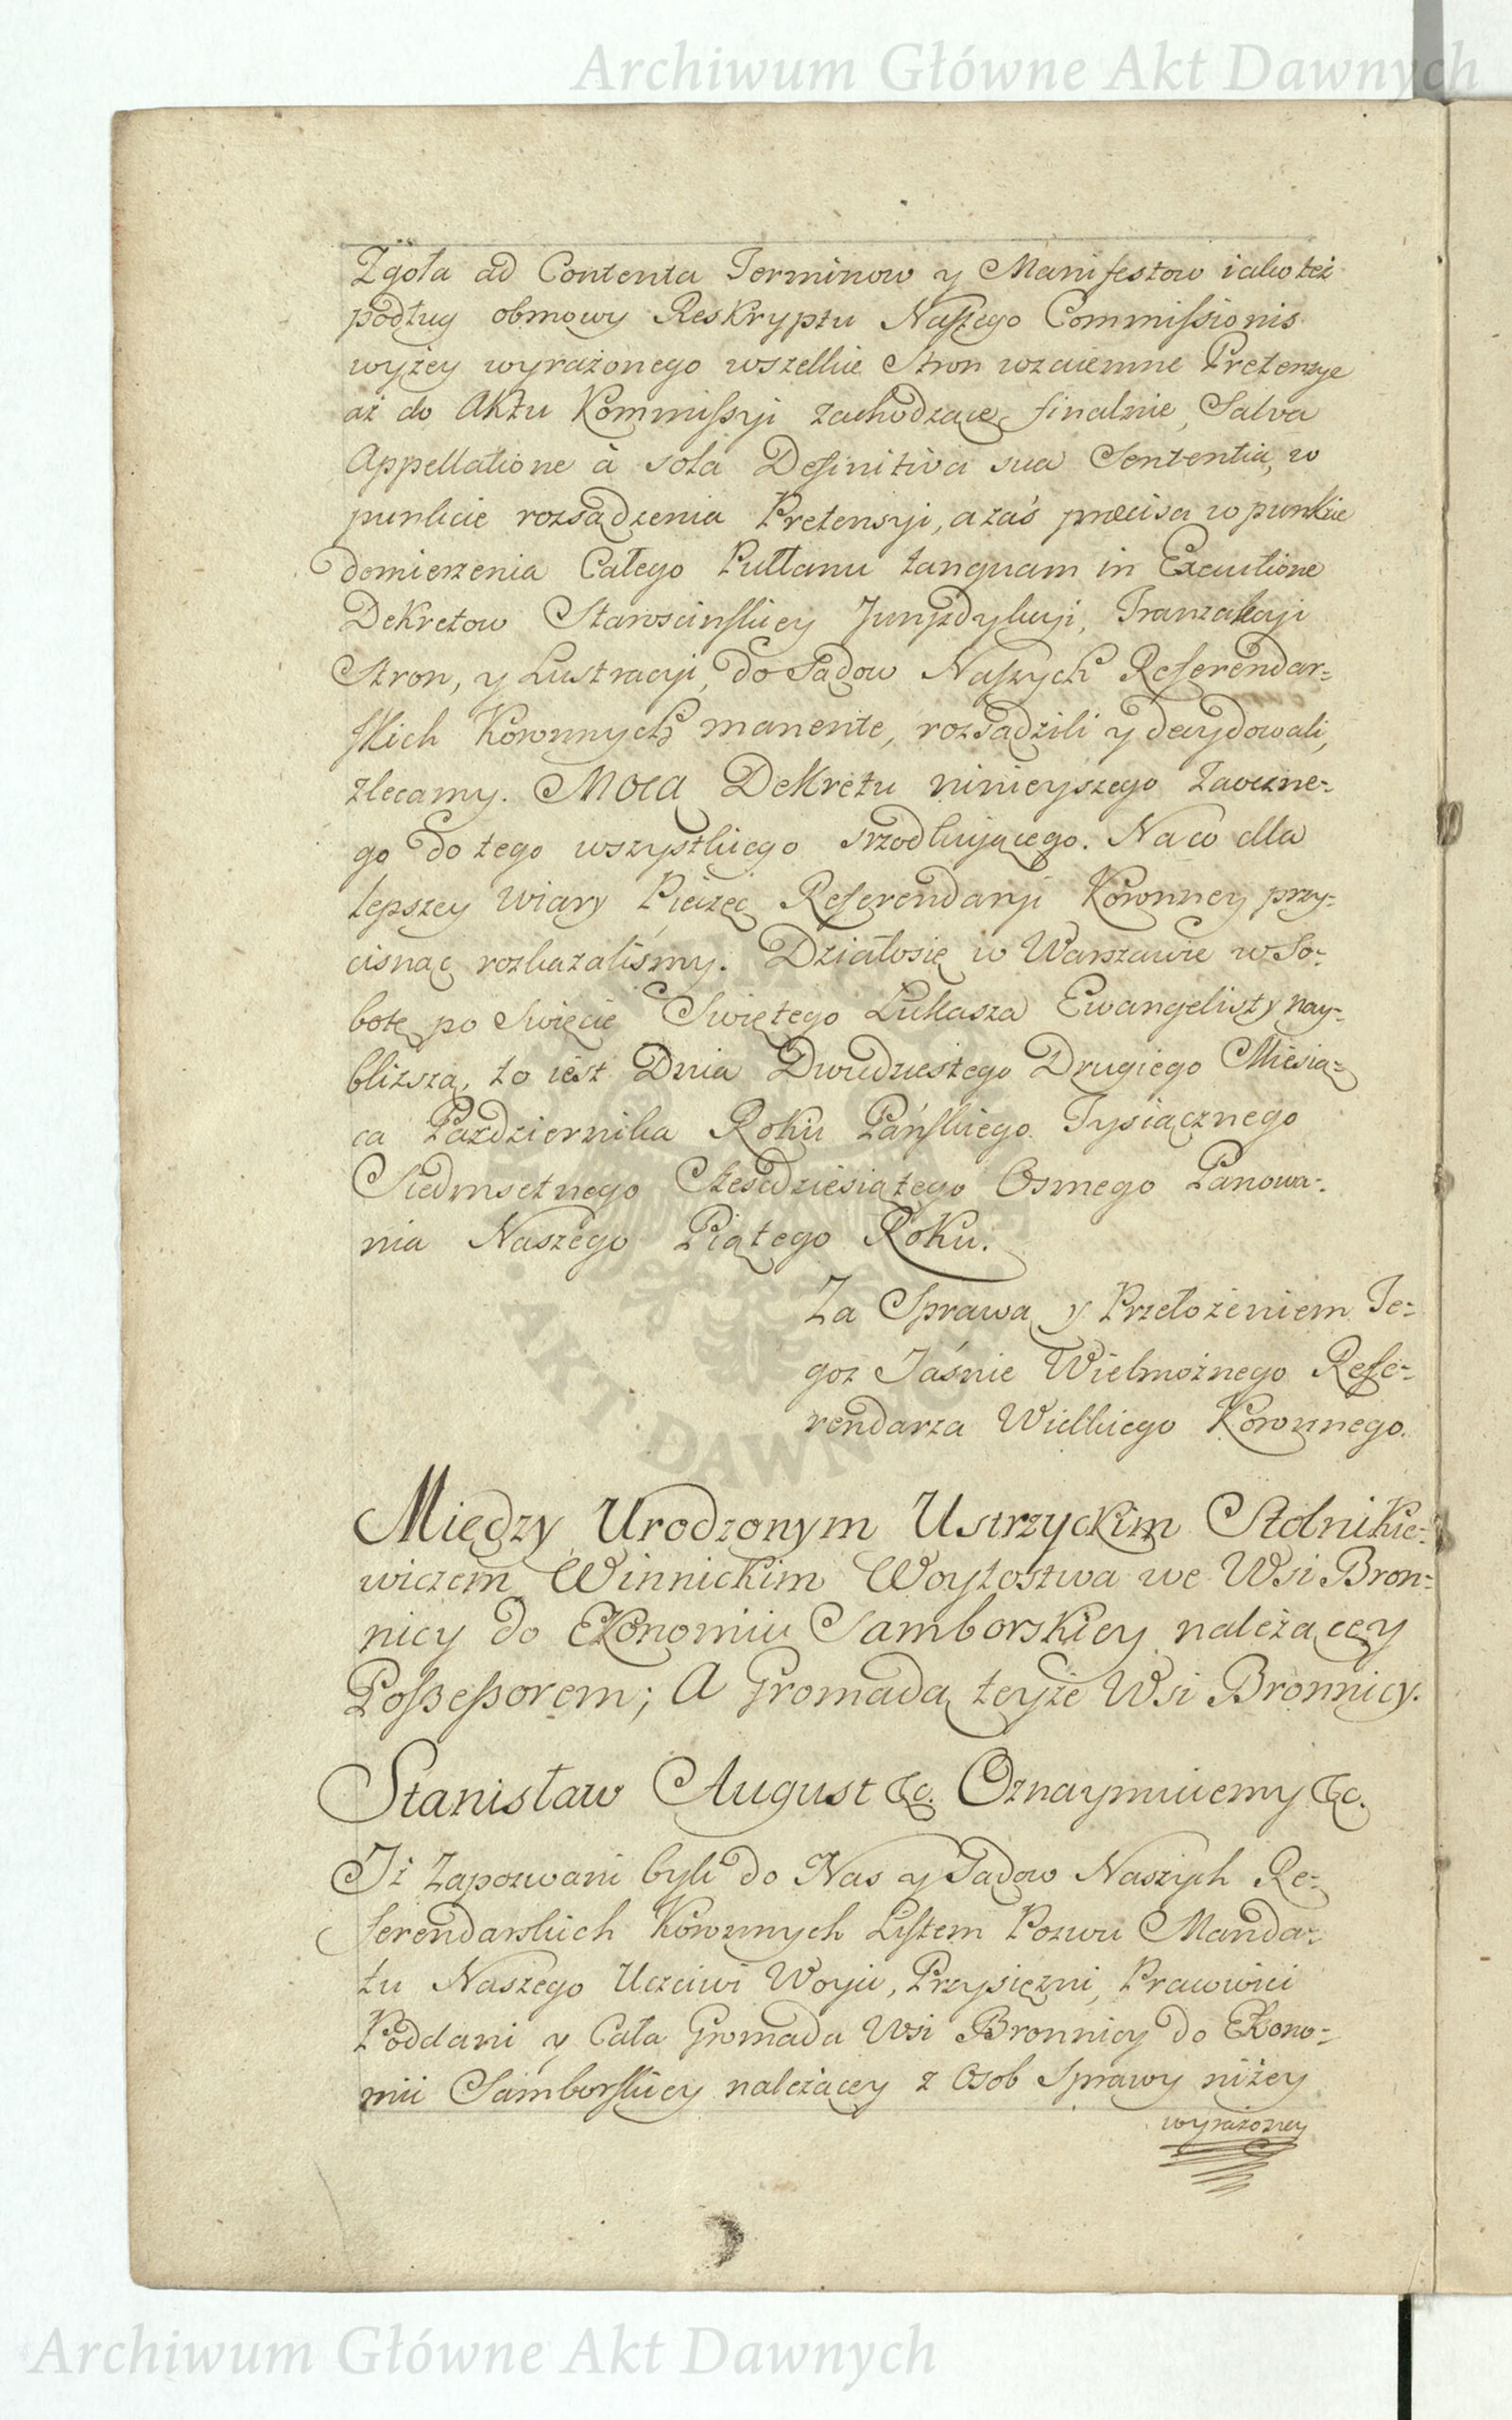 Archiwum Główne Akt Dawnych
Zgoła ad Contenta Terminow y Manifestow iako też
podług obmowy Reskryptu Naszego Commissionis
wyżey wyrażonego wszelkie Stron wzaiemne Pretensye
aż do Aktu Kommissyi zachodzące finalnie, Salva
Appellatione à sola Definitiva sua Sententia, w
punkcie rozsądzenia Pretensyi, a zaś præcisa w punkcie
domierzenia Całego Pułłanu tanquam in Executione
Dekretow Starościnskiey Juryzdykcyi, Tranzakcyi
Stron, y Lustracyi, do Sądow Naszych Referendar-
skich Koronnych manente, rozsądzili y decydowali,
zlecamy. Mocą Dekretu ninieyszego Zaoczne-
go do tego wszystkiego srzodkuiącego. Na co dla
lepszey Wiary Pieczęć Referendaryi Koronney przy-
cisnąć rozkazaliśmy. Działo się w Warszawie w So-
botę po Swięcie Swiętego Łukasza Ewangelisty nay-
bliższą, to iest Dnia Dwudziestego Drugiego Miesią-
ca Pazdziernika Roku Pańskiego Tysiącznego
Siedmsetnego Szesdziesiątego Osmego Panowa-
nia Naszego Piątego Roku.
Za Sprawą y Przełożeniem Te-
goz Jaśnie Wielmożnego Refe-
rendarza Wielkiego Koronnego.
Między Urodzonym Ustrzyckim Stolnikie-
wiczem Winnickim Woytostwa we Wsi Bron-
nicy do Ekonomiu Samborskiey należącey
Possessorem; A Gromadą teyże Wsi Bronnicy.
Stanisław August &c. Oznaymuiemy &c.
Iż Zapozwani byli do Nas y Sądow Naszych Re-
ferendarskich Koronnych Listem Pozwu Manda-
tu Naszego Uczciwi Woyt, Przysiężni, Prawowici
Poddani y Cała Gromada Wsi Bronnicy do Ekono-
mii Samborskiey należącey z Osob Sprawy niżey
wyrażoney
Archiwum Główne Akt Dawnych